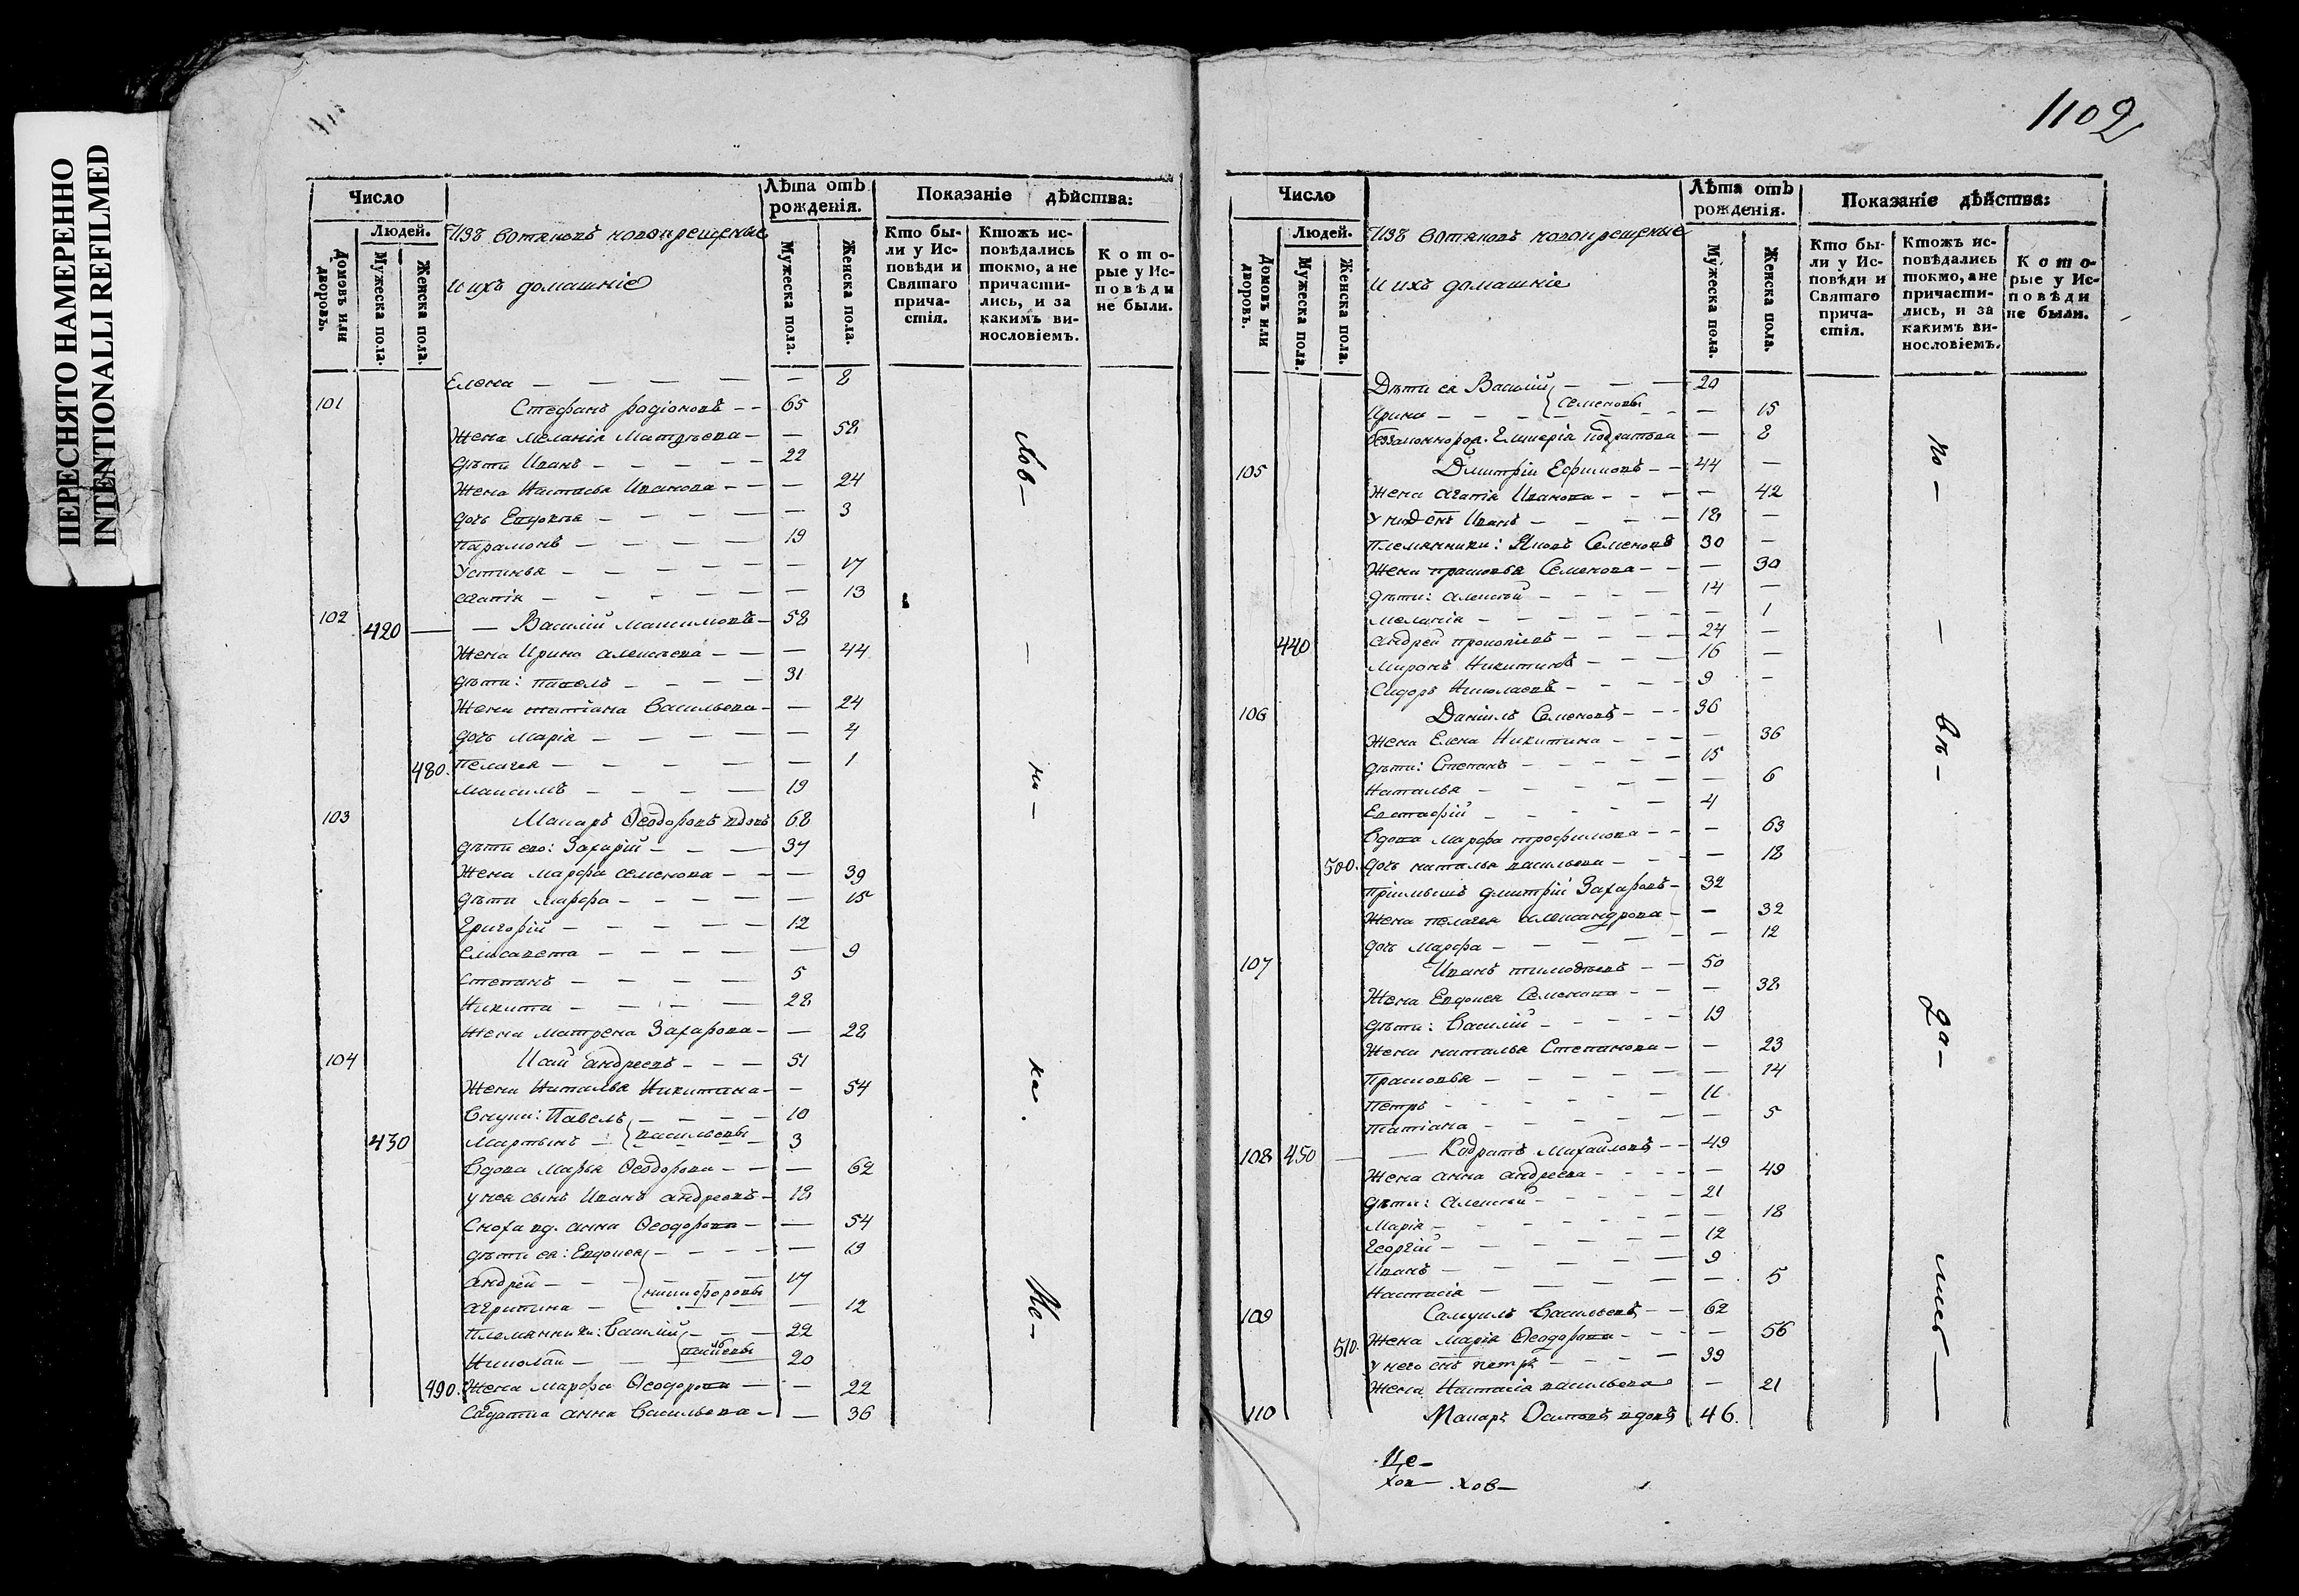 ПЕРЕСНЯТО НАМЕРЕННО
INTENTIONALLI REFILMED
Число
Лѣта отъ рожденія.
Показаніе дѣйства:
Людей.
Домовъ или дворовъ.
Мужеска пола.
Женска пола.
Изъ вотяковъ новокрещеные
и ихъ домашніе
Мужеска пола.
Женска пола.
Кто были у Исповѣди и Святаго причастія.
Ктожъ исповѣдались токмо, а не причастились, и за какимъ винословіемъ.
Которые у Исповѣди не были.
Елена — 8
101 Стефанъ Радіоновъ 65
Жена Меланія Матвѣева — 58
дѣти Иванъ 22
Жена Настасья Иванова — 24
дочь Евдокѣя — 3
Парамонъ 19
Устинья — 17
Агапія — 13
102 420 — Василій Максимовъ 58
Жена Ирина Алексѣева — 44
дѣти: Павелъ 31
Жена Татіана Васильева — 24
дочь Марія — 4
480. Пелагея — 1
Максимъ 19
103 Макаръ Ѳеодоровъ вдовъ 68
дѣти его: Захарій 37
Жена Марфа Семенова — 39
дѣти Марфа — 15
Григорій 12
Елисавета — 9
Степанъ 5
Никита 28
Жена Матрена Захарова — 28
104 Исай Андреевъ 51
Жена Наталья Никитина — 54
Внуки: Павелъ 10
430 Мартынъ Васильевы 3
Вдова Марья Ѳеодорова — 62
у нея сынъ Иванъ Андреевъ 18
Сноха вд. Анна Ѳеодорова — 54
дѣти ея: Евдокея — 19
Андрей Никифоровы 17
Агрипина — 12
Племянники: Василій 22
Николай 20
490. Жена Марфа Ѳеодорова — 22
Салдатка Анна Васильева — 36
хов-
ни-
ка.
Не-
1102
Число
Лѣта отъ рожденія.
Показаніе дѣйства:
Людей.
Домовъ или дворовъ.
Мужеска пола.
Женска пола.
Изъ вотяковъ новокрещеные
и ихъ домашніе
Мужеска пола.
Женска пола.
Кто были у Исповѣди и Святаго причастія.
Ктожъ исповѣдались токмо, а не причастились, и за какимъ винословіемъ.
Которые у Исповѣди не были.
Дѣти ея Василій 20
Ирина Семеновы — 15
— 8
105 Димитрій Ефимовъ 44 —
Жена Агапія Иванова — 42
У нихъ снъ Иванъ 18 —
Племянники: Яковъ Семеновъ 30 —
Жена Прасковья Семенова — 30
дѣти: Алексѣй 14 —
Меланія — 1
440 Андрей Прокопіевъ 24 —
Миронъ Никитинъ 16 —
Сидоръ Николаевъ 9 —
106 Даніилъ Семеновъ 36
Жена Елена Никитина — 36
дѣти: Степанъ 15
Наталья — 6
Евстафій 4
Вдова Марфа Трофимова — 63
500. дочь Наталья Васильева — 18
Пріимышъ Димитрій Захаровъ 32
Жена Пелагея Александрова — 32
дочь Марфа — 12
107 Иванъ Тимоѳѣевъ 50
Жена Евдокея Семенова — 38
дѣти: Василій 19
Жена Наталья Степанова — 23
Прасковья — 14
Петръ 11
Татіана — 5
108 450 — Кодратъ Михайловъ 49
Жена Анна Андреева — 49
дѣти: Алексѣй 21
Марія — 18
Георгій 12
Иванъ 9
Настасія — 5
109 Самуилъ Васильевъ 62
510. Жена Марія Ѳеодорова — 56
У него снъ Петръ 39
Жена Настасія Васильева — 21
110 Макаръ Осиповъ вдовъ 46.
по-
вѣ-
да-
лись
Це-
хов- хов-